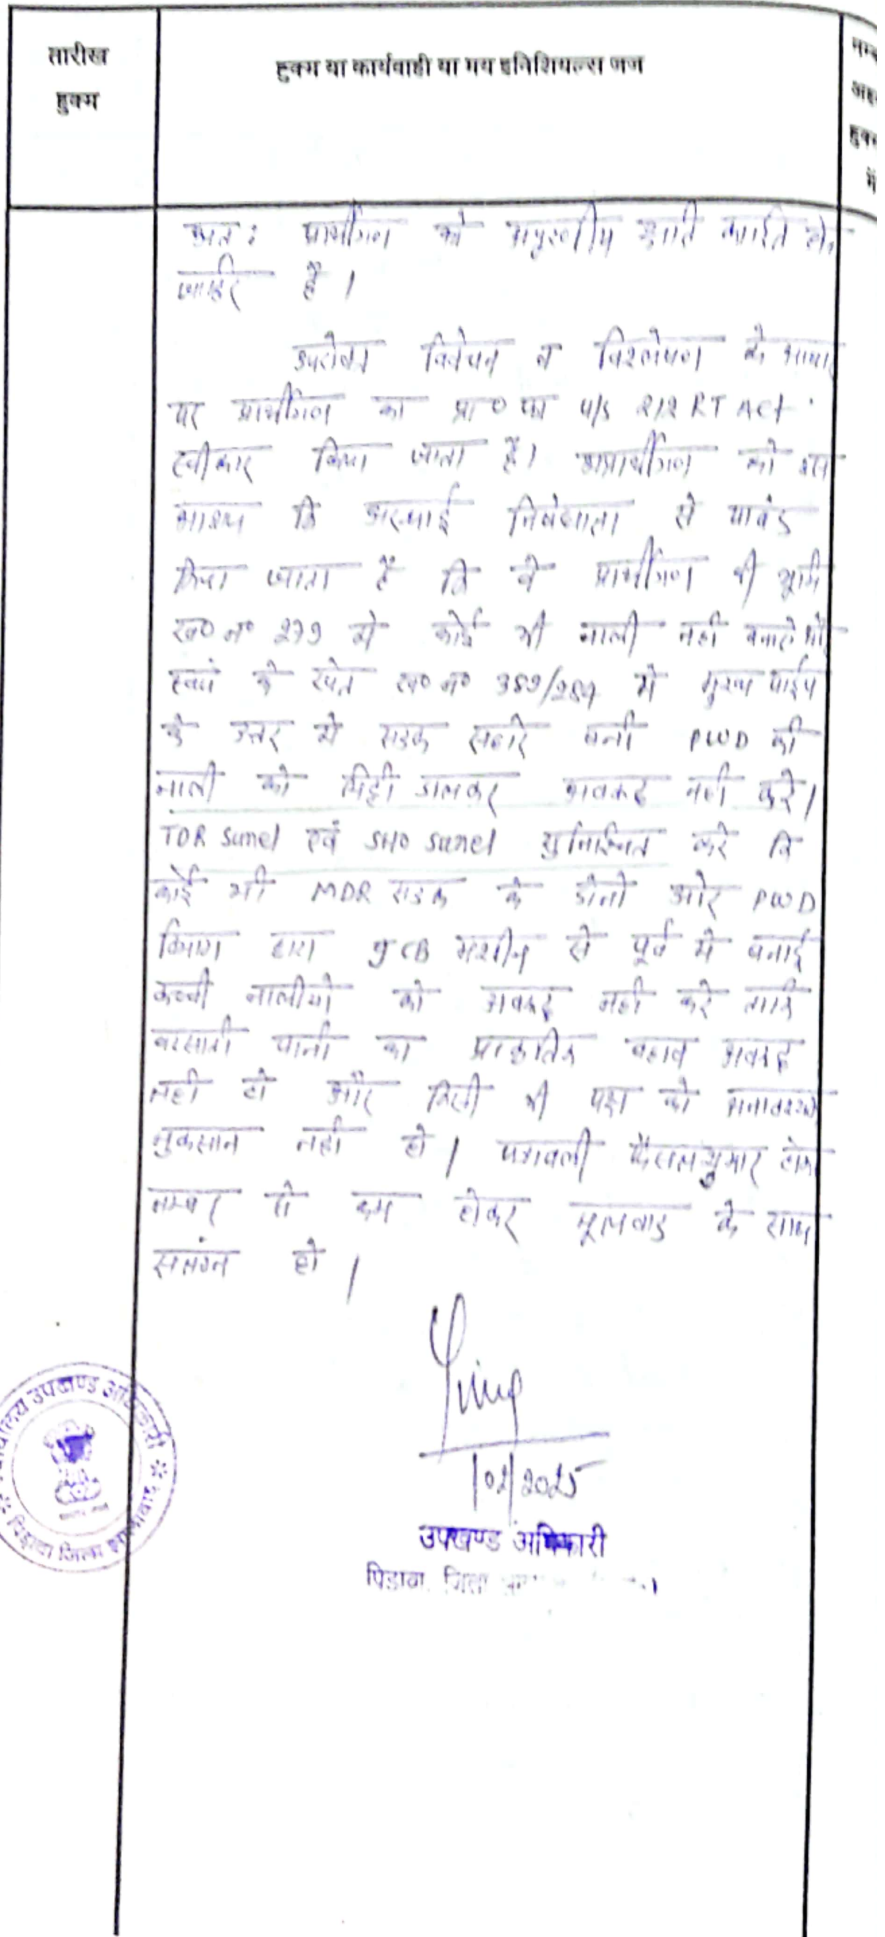 तारीख
हुक्म
हुक्म या कार्यवाही या मय इनिशियल्स जज
नम्ब
अह
हुक्म
में
अतः प्रार्थीगण को अपूरणीय क्षति कारित होन
जाहिर है।
उपरोक्त विवेचन व विश्लेषण के आधार
पर प्रार्थीगण का प्रा० पत्र u/s 212 RT Act
स्वीकार किया जाता है। अप्रार्थीगण को इस
आशय कि अस्थाई निषेधाज्ञा से पाबंद
किया जाता है कि वे प्रार्थीगण की भूमि
ख० न० 279 मे कोई भी नाली नही बनाये और
स्वयं के खेत ख० न० 389/284 मे मुख्य पाईप
के उत्तर मे सडक सहारे बनी PWD की
नाली को मिट्टी डालकर अवरुद्ध नही करे।
TDR Sunel एवं SHO Sunel सुनिश्चित करे कि
कोई भी MDR सडक के दोनो ओर PWD
विभाग द्वारा JCB मशीन से पूर्व मे बनाई
कच्ची नालीयो को अवरुद्ध नही करे ताकि
बरसाती पानी का प्राकृतिक बहाव अवरुद्ध
नही हो और किसी भी पक्ष को अनावश्यक
नुकसान नही हो। पत्रावली फैसलशुमार होकर
नम्बर से कम होकर मूलवाद के साथ
सलंग्न हो।
02/2025
उपखण्ड अधिकारी
पिडावा, जिला
उपखण्ड अधिकारी
पिडावा जिला झालावाड